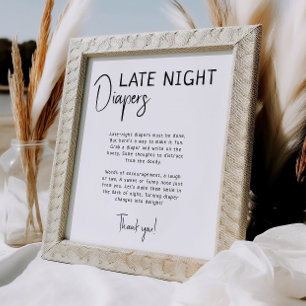 LATE NIGHT
Diapers
Late-night diapers must be done,
But here's a way to make it fun
Grab a diaper and write on the
booty, Some thoughts to distract
from the doody.
Words of encouragement, a laugh
or two, A sweet or funny note just
from you. Let's make them smile in
the dark of night, Turning diaper
changes into delight!
Thank you!